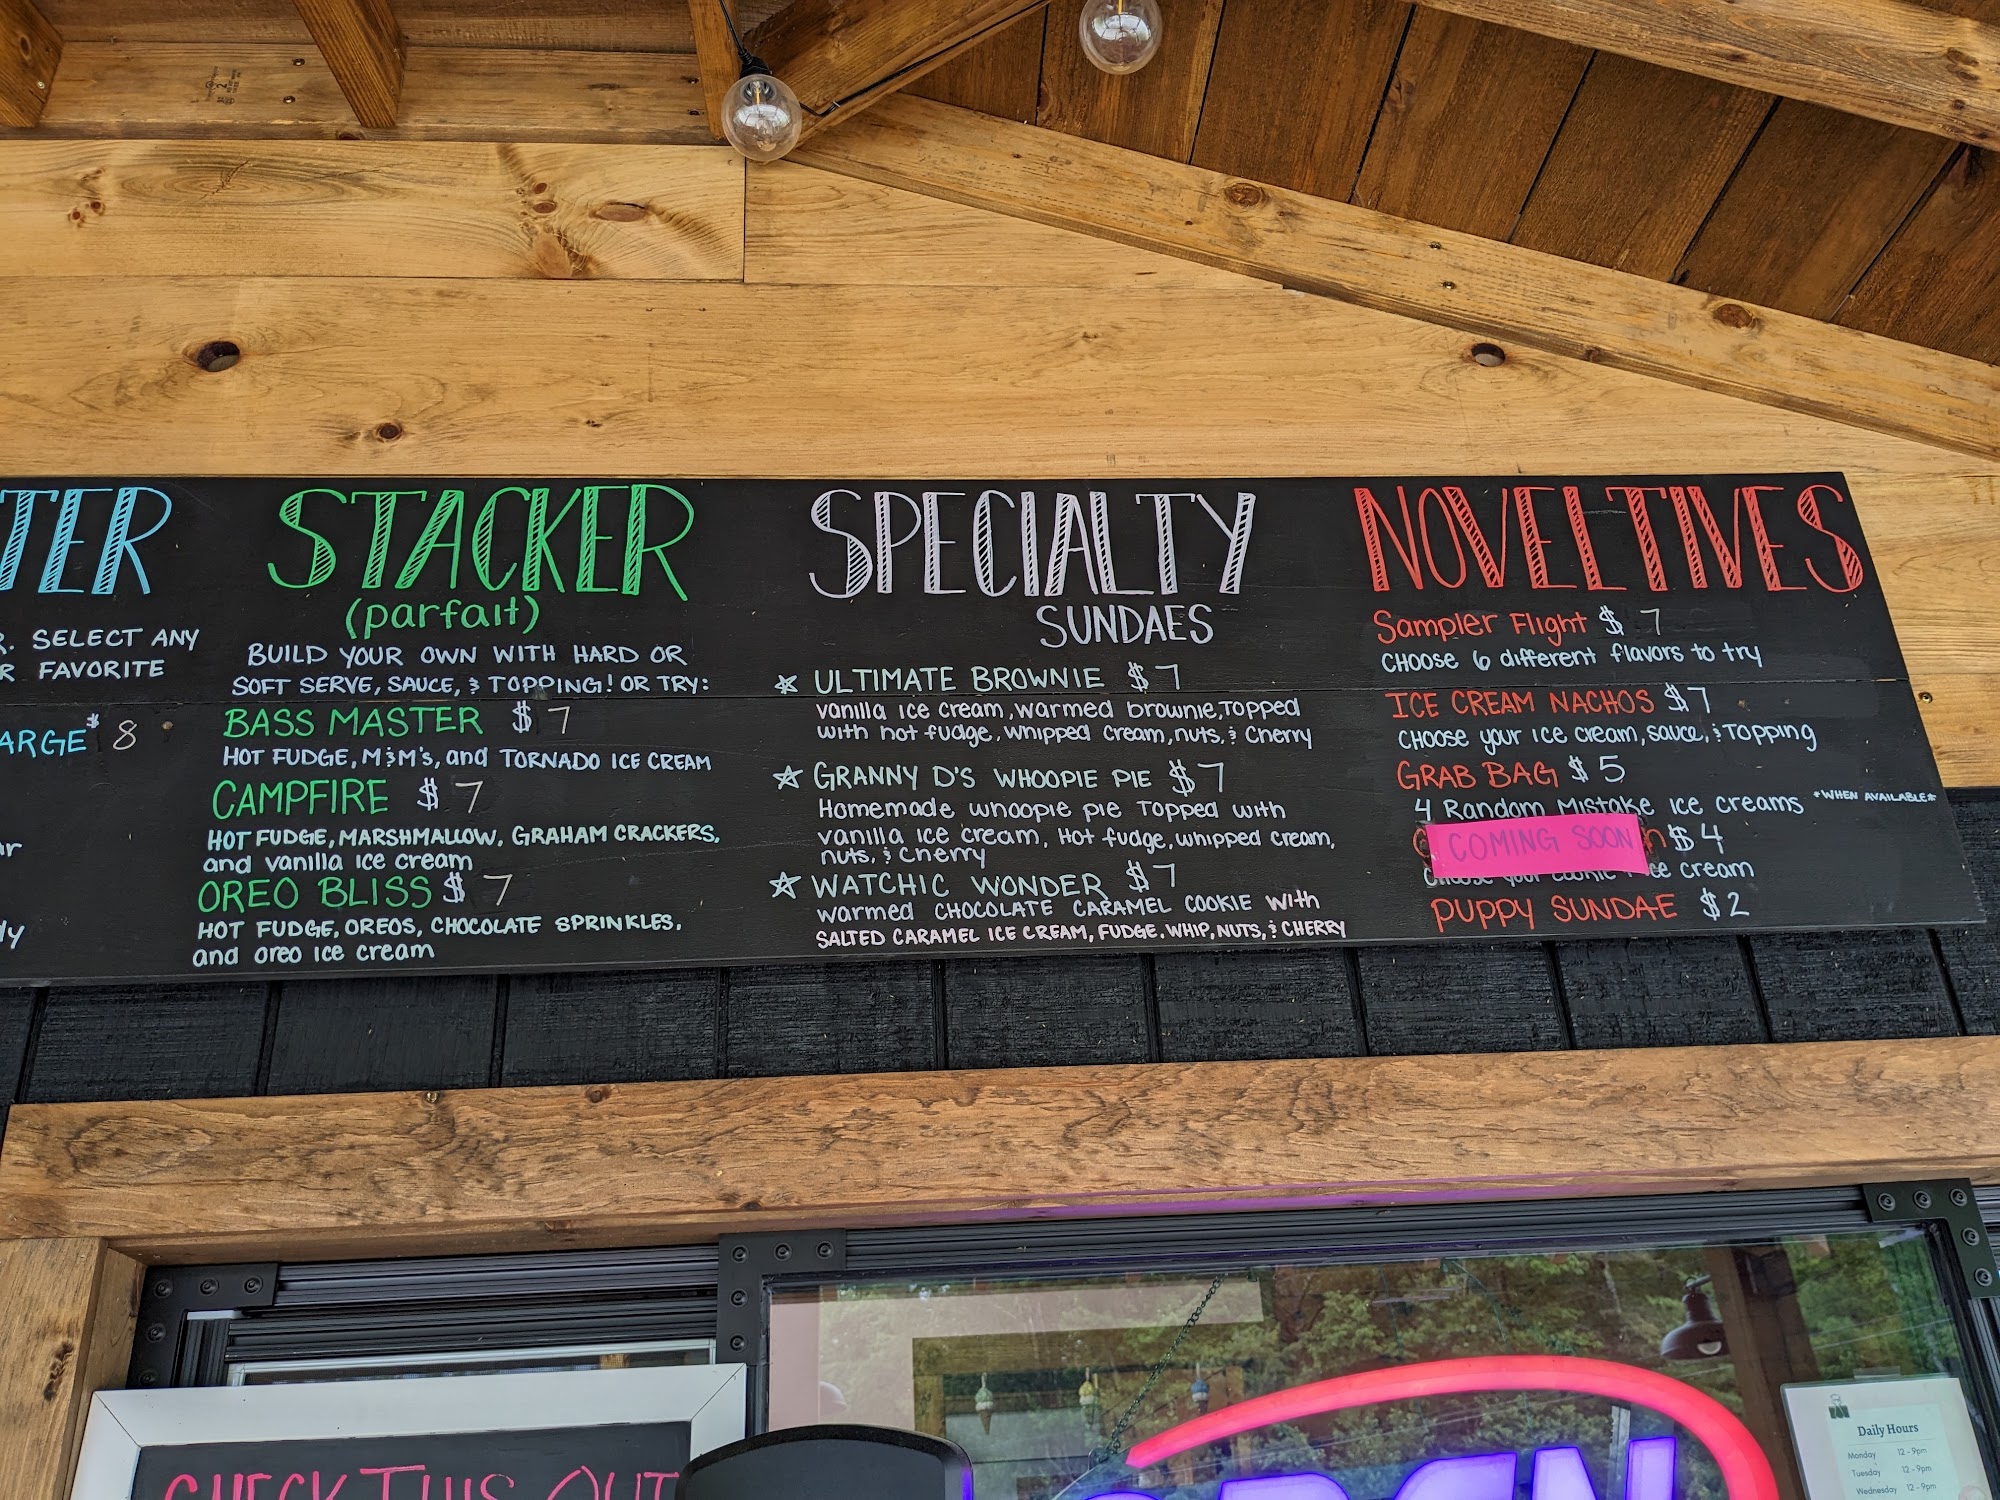 TER
R. SELECT ANY
R FAVORITE
ARGE $8
STACKER
(parfait)
BUILD YOUR OWN WITH HARD OR
SOFT SERVE, SAUCE, & TOPPING! OR TRY:
BASS MASTER $7
HOT FUDGE, M&M's, and TORNADO ICE CREAM
CAMPFIRE $7
HOT FUDGE, MARSHMALLOW, GRAHAM CRACKERS,
and vanilla ice cream
OREO BLISS $7
HOT FUDGE, OREOS, CHOCOLATE SPRINKLES,
and oreo ice cream
SPECIALTY
SUNDAES
☆ ULTIMATE BROWNIE $7
vanilla ice cream, warmed brownie, Topped
with hot fudge, whipped cream, nuts, & cherry
☆ GRANNY D'S WHOOPIE PIE $7
Homemade whoopie pie Topped with
vanilla ice cream, Hot fudge, whipped cream,
nuts, & cherry
☆ WATCHIC WONDER $7
warmed CHOCOLATE CARAMEL COOKIE with
SALTED CARAMEL ICE CREAM, FUDGE, WHIP, NUTS, & CHERRY
NOVELTIVES
Sampler Flight $7
CHOOSE 6 different flavors to try
ICE CREAM NACHOS $7
CHOOSE your ice cream, sauce, & Topping
GRAB BAG $5
4 Random Mistake ice creams *WHEN AVAILABLE*
COMING SOON $4
cream
PUPPY SUNDAE $2
CHECK THIS OUT
OPEN
Daily Hours
Monday 12 - 9pm
Tuesday 12 - 9pm
Wednesday 12 - 9pm